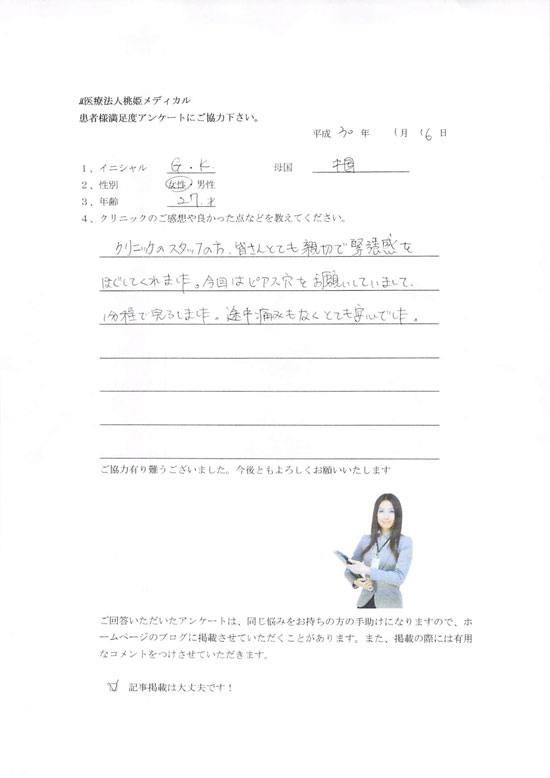 医療法人桃姫メディカル
患者様満足度アンケートにご協力下さい。
平成 30 年 1月 16 日
1、イニシャル G.K. 母国
2、性別 女性・男性
3、年齢 27.才
4、クリニックのご感想や良かった点などを教えてください。
クリニックのスタッフの方、皆さんとても親切で緊張感を
ほぐしてくれました。今回はピアス穴をお願いしていまして、
1分程で完了しました。途中痛みもなくとても安心でした。
ご協力有り難うございました。今後ともよろしくお願いいたします
ご回答いただいたアンケートは、同じ悩みをお持ちの方の手助けになりますので、ホ
ームページのブログに掲載させていただくことがあります。また、掲載の際には有用
なコメントをつけさせていただきます。
記事掲載は大丈夫です！